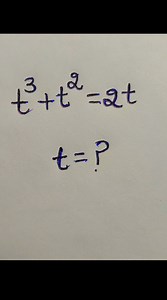 t³+t²=2t
t=?